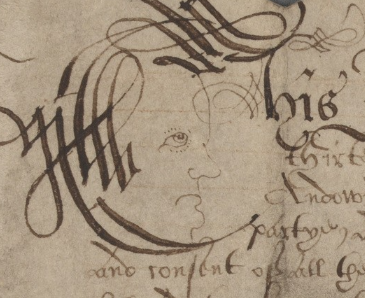 This
thirt
Endow
partyes
and consent of all the